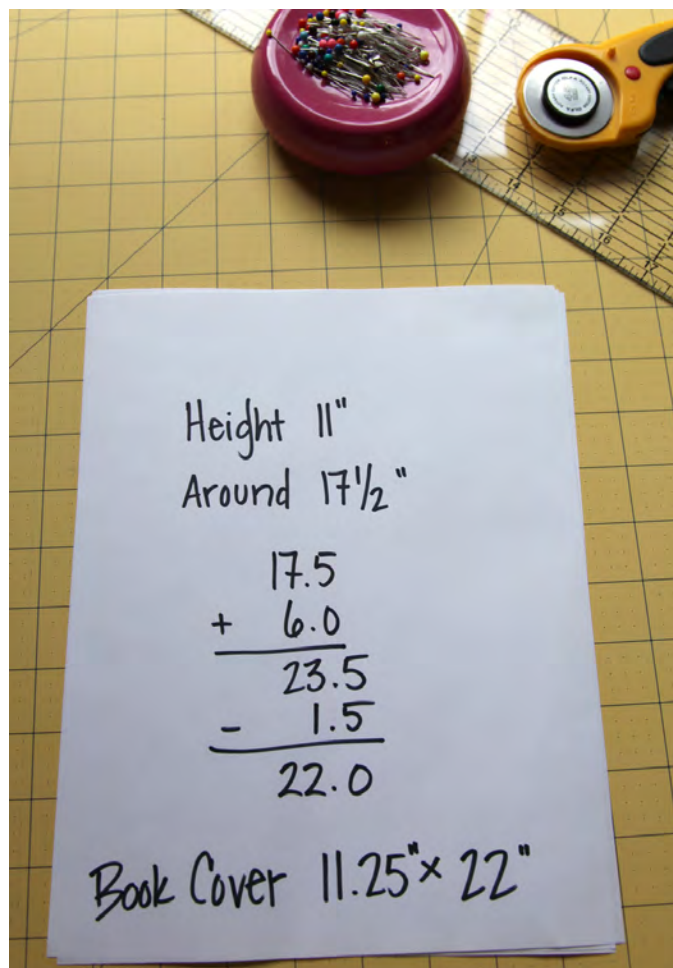 Height 11"
Around 17 1/2"
17.5
+ 6.0
23.5
- 1.5
22.0
Book Cover 11.25" x 22"